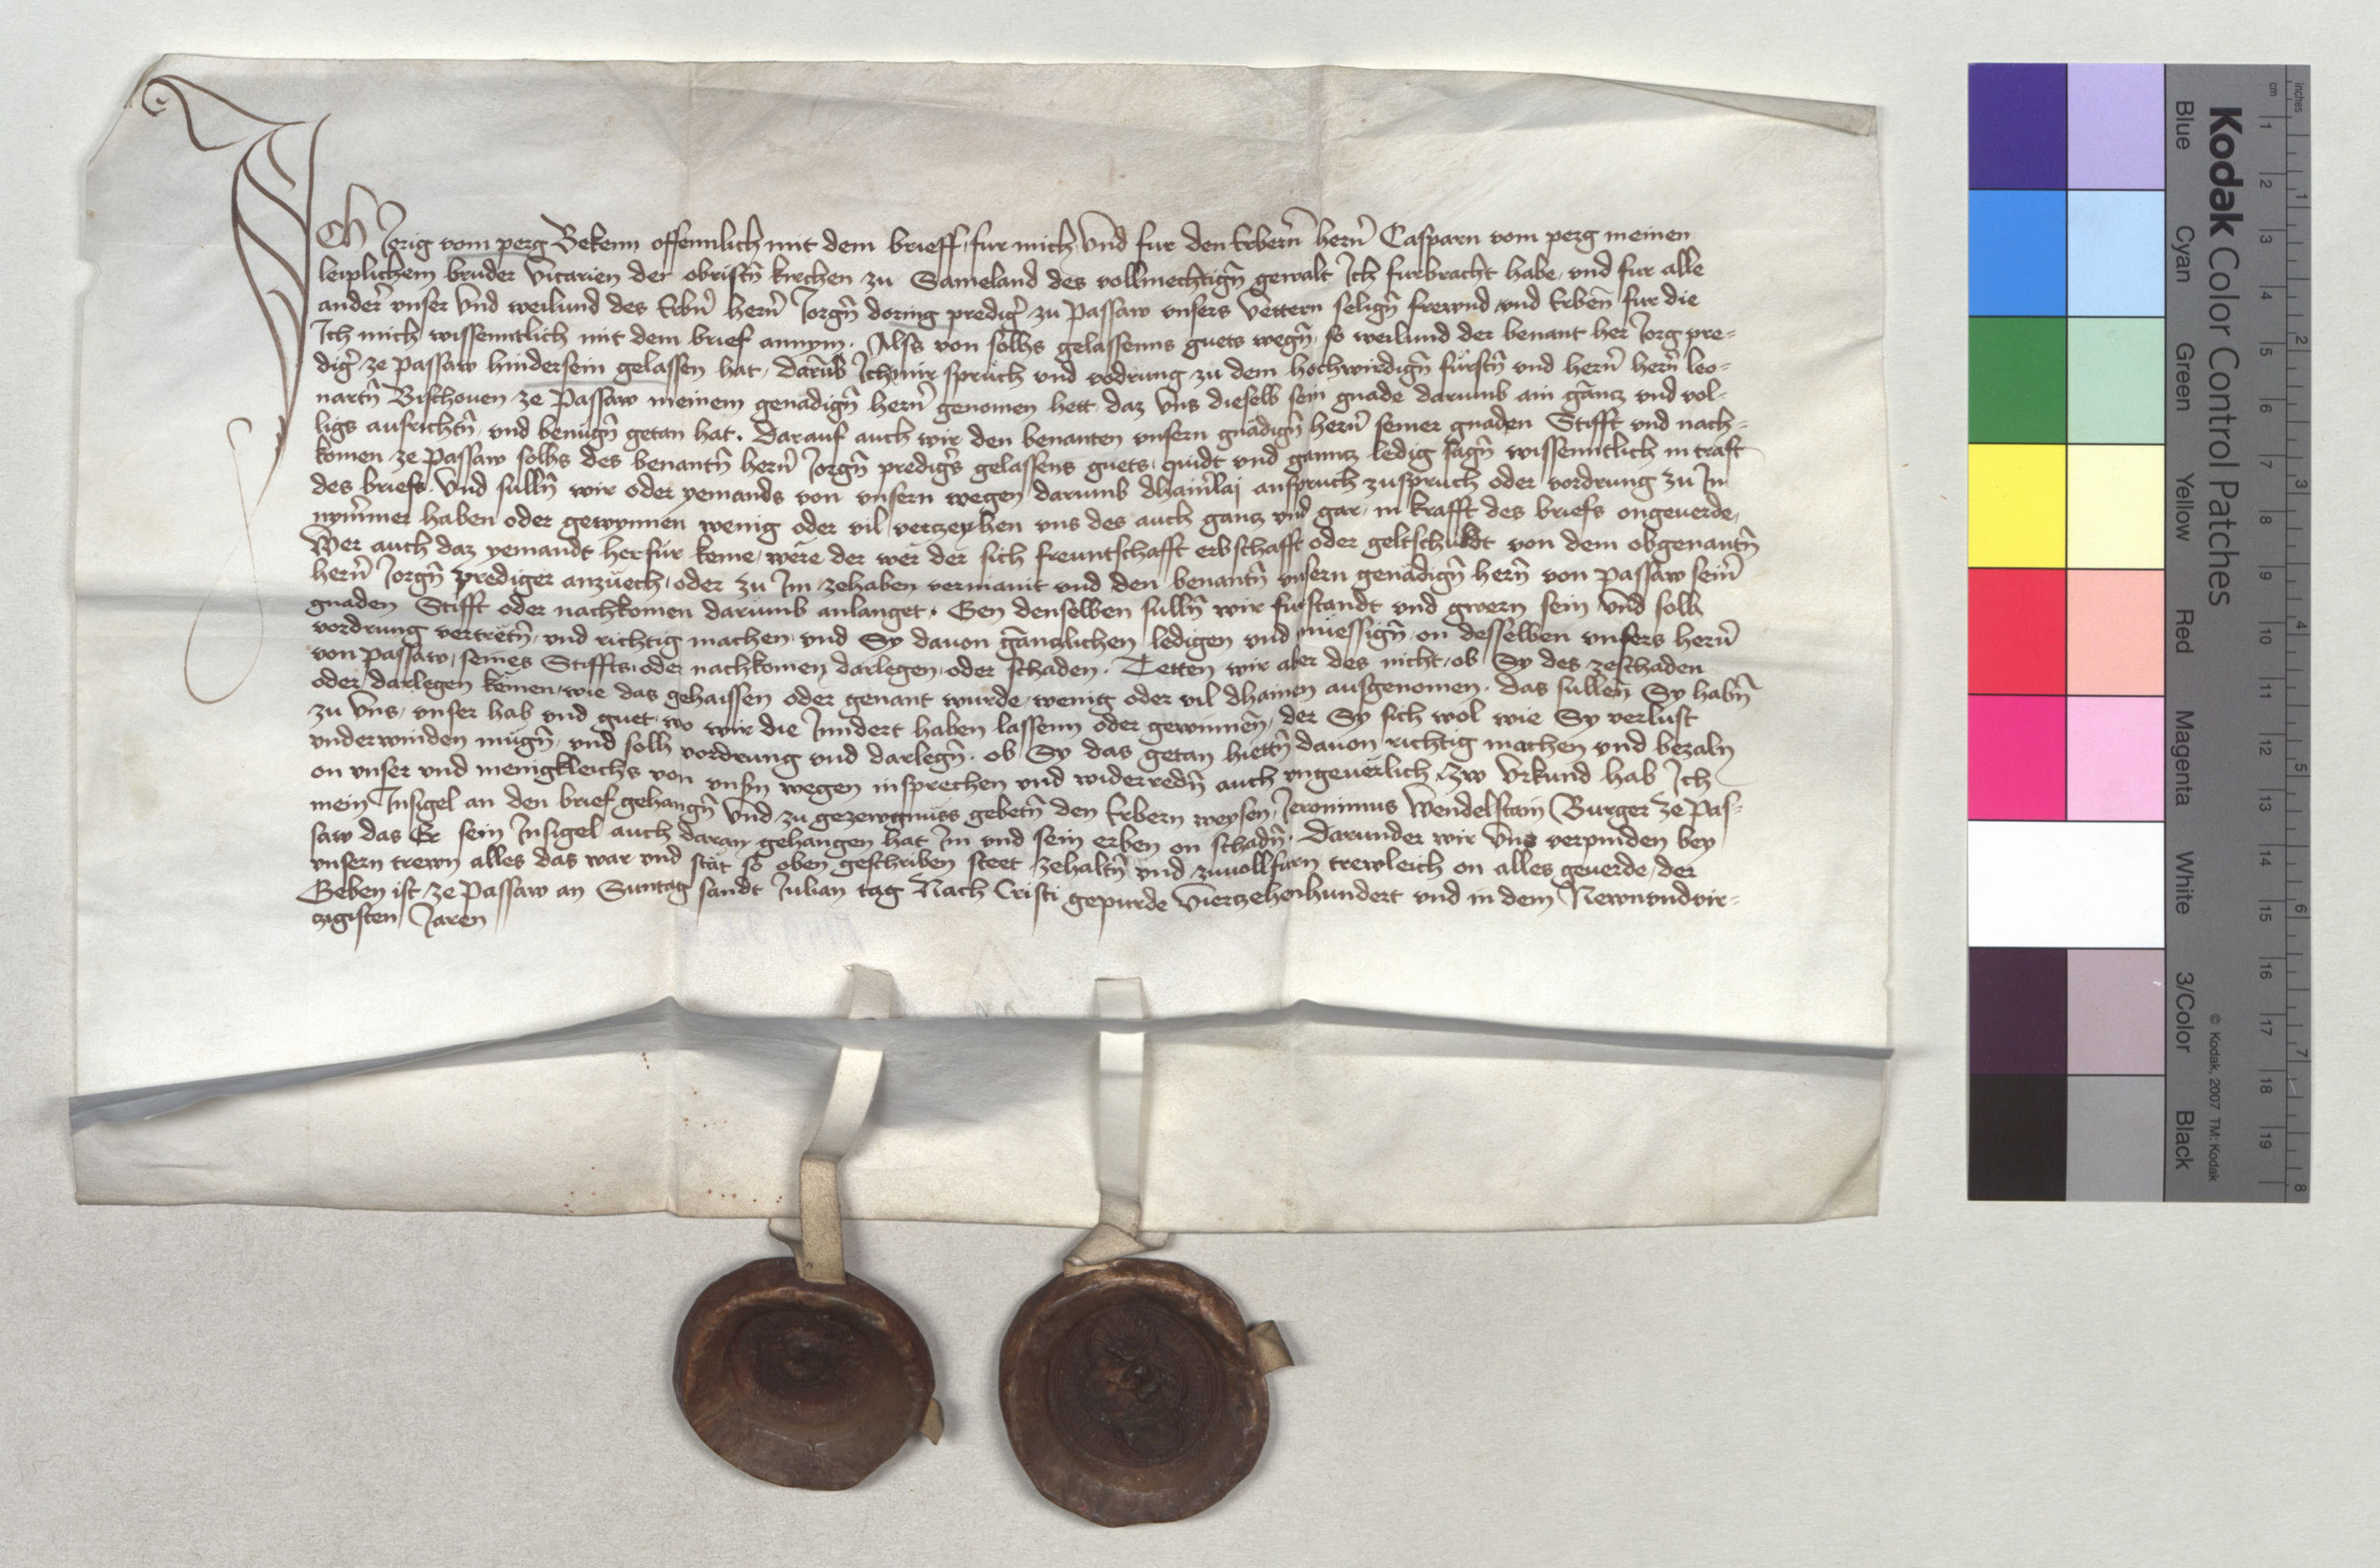 Ich Jorig vom perg Bekenn offennlich mit dem brieff fur mich Vnd fur den Erbern̄ hern̄ Casparn vom perg meinen
leiplichem bruder Vicarien der obristn̄ kirchen zu Sameland des vollmechtign̄ gewalt Ich furbracht habe, vnd fur alle
ander vnser Vnd weilund des Erbn̄ hern̄ Jorgn̄ doring predig̉ zu Passaw vnsers Vettern selign̄ frewnd vnd Erben̄ fur die
Ich mich wissenntlich mit dem brief annym. Alss von solhs gelassenns guets wegn̄, so weilund der benant her Jorg pre-
dig̉ ze Passaw hindersein gelassen hat, darūb Ich mir spruch vnd vodrung zu dem hochwirdign̄ fürstn̄ vnd hern̄ hern̄ leo-
nartn̄ Bischouen ze Passaw meinem genadign̄ hern̄ genomen hett daz Vns dieselb sein gnade darumb ain gancz vnd vol-
ligs ausrichtn̄, vnd benügn̄ getan hat. Darauf auch wir den benanten vnsern gnädign̄ hern̄ seiner gnaden Stifft vnd nach-
komen ze Passaw solhs des benantn̄ hern̄ Jorgn̄ predig̉s gelassens guets, quidt vnd ganncz ledig sagn̄ wissenntlich in craft
des briefs. Vnd sulln̄ wir oder yemands von vnsern wegen darumb dhainlai anspruch zuspruch oder vordrung zu In
nymmer haben oder gewynnen wenig oder vil verczeyhen vns des auch gancz vnd gar, in krafft des briefs ongeuerde,
Wer auch daz yemandt herfür keme, were der wer der sich freuntschafft erbschafft oder geltschuldt von dem obgenantn̄
hern̄ Jorgn̄ prediger anzüech, oder zu Im zehaben vermaint vnd den benantn̄ vnsern genädign̄ hern̄ von Passaw sein̄
gnaden Stifft oder nachkomen darumb anlanget. Gen denselben sulln̄ wir fürstandt vnd gwern sein Vnd solh
vordrung vertretn̄, vnd richtig machen, vnd Sy dauon gänczlichen ledigen vnd müessign̄, on desselben vnsers hern̄
von Passaw, seines Stiffts, oder nachkomen darlegen, oder schaden. Tetten wir aber des nicht, ob Sy des zeschaden
oder darlegen kemen, wie das gehaissen oder genant wurde, wenig oder vil dhainen ausgenomen. das sullen̄ Sy habn̄
zu Vns, vnser hab vnd guet, wo wir die Inndert haben lassenn oder gewinnen̄, der Sy sich wol wie Sy verlust
vnderwinden mügn̄, vnd solh vordrung vnd darlegn̄, ob Sy das getan hiettn̄ dauon richtig machen vnd bezaln
on vnser vnd menigkleichs von vnsn̄ wegen insprechen vnd widerredn̄ auch vngeuerlich, Zw Vrkund hab Ich
mein Insigel an den brief gehangn̄ Vnd zu gezewgnüss gebetn̄ den Erbern weysen, Jeronimus Wendelstain Burger ze Pas-
saw das Er sein Insigel auch daran gehangen hat Im vnd sein erben on schadn̄. Darunder wir Vns verpinden bey
vnsern trewn alles das war vnd stät so oben geschriben steet zehaltn̄ vnd zuuollfurn trewleich on alles geuerde, der
Geben ist, ze Passaw an Suntag sandt Julian tag Nach Cristi gepurde Vierczehenhundert vnd in dem Newnvndvir-
czigisten Jaren
Kodak Color Control Patches
Blue Cyan Green Yellow Red Magenta White 3/Color Black
© Kodak, 2007 TM: Kodak
cm 1 2 3 4 5 6 7 8 9 10 11 12 13 14 15 16 17 18 19
inches 1 2 3 4 5 6 7 8